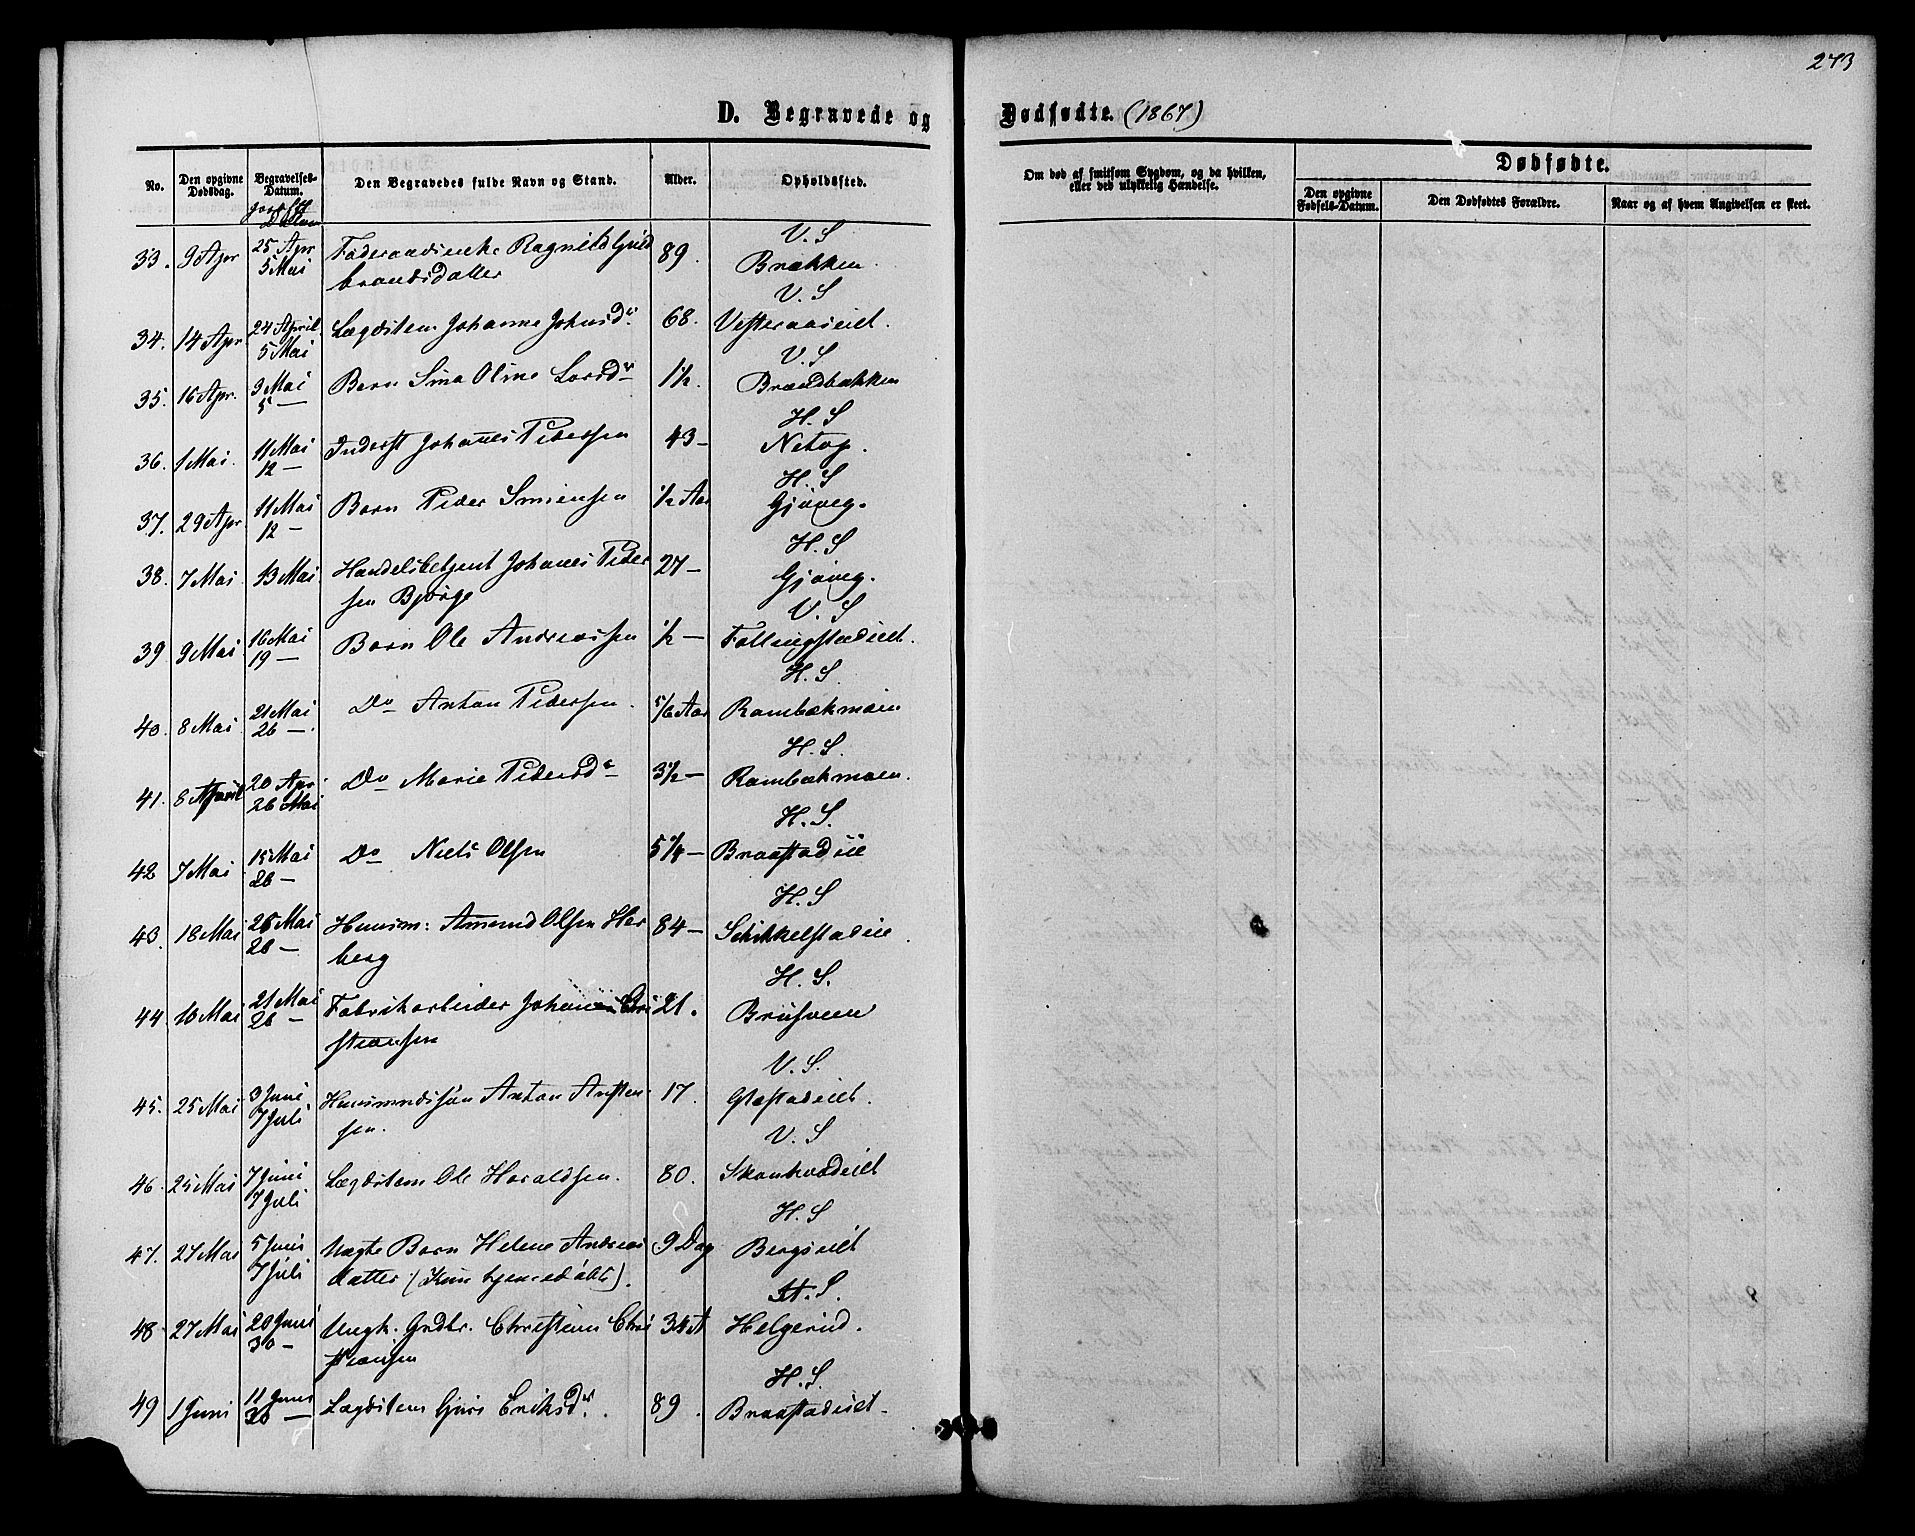 273
D. Begravede og Dødfødte. (1867)
No.
Den opgivne Dødsdag.
Begravelses-Datum.
Den Begravedes fulde Navn og Stand.
Alder.
Opholdssted.
Om død af smitsom Sygdom, og da hvilken, eller ved ulykkelig Hændelse.
Dødfødte.
Den opgivne Fødsels-Datum.
Den Dødfødtes Forældre.
Naar og af hvem Angivelsen er skeet.
V. S
33. 9 Apr 25 Apr 5 Mai Føderaadsenke Ragnild Guld 89. Brækken.
brandsdatter
V. S
34. 14 Apr 24 April 5 Mai Lægdslem Johanne Johnsdr. 68. Vesteraaseiet.
V. S
35. 16 Apr. 3 Mai 5 — Barn Sina Oline Larsdr 1½. Brændbækken
H. S
36. 1 Mai. 11 Mai 12 — Inderst Johannes Pedersen 43 — Netop.
H. S
37. 29 Apr 11 Mai 12 — Barn Peder Simensen ½ Aar Gjøveg.
H. S
38. 7 Mai 13 Mai Handelsbetjent Johanes Peder 27 — Gjøveg.
sen Bjørge
V. S
39 9 Mai 16 Mai 19 — Barn Ole Andreassen ½ — Fallingstadeiet.
H. S.
40. 8 Mai 21 Mai 26 —. Do Anton Pedersen. 5/6 Aar Rambækmoen
H. S.
41. 8 April 20 Apr 26 Mai Do Marie Pedersdr 3½ — Rambækmoen.
H. S.
42 7 Mai 15 Mai 26 — Do Niels Olsen 5¼ — Braastadeie
H. S
43. 18 Mai 26 Mai 26 — Huusm: Amund Olsen Her 84 — Schikkelstadeie.
berg
H. S.
44. 16 Mai 21 Mai 26 — Fabrikarbeider Johannes Chri 21. Brusveen
stiansen
V. S.
45. 25 Mai 3 Juni 7 Juli Huusmndssøn Anton Ansten 17. Glæstadeiet.
sen.
V. S
46. 25 Mai 7 Juni 7 Juli Lægdslem Ole Haraldsen. 80. Skonhovdeiet
H. S
47. 27 Mai 5 Juni 7 Juli Uægte Barn Helene Andreas 9 Dag Bergseiet
datter. (Kun hjemmedøbt).
H. S.
48 27 Mai 20 Juni 30 — Ungk. Grdbr. Christian Chri 34 A Helgerud.
stiansen
H. S.
49 1 Juni 11 Juni 30 — Lægdslem Guri Eriksdr. 89. Braastadeiet.